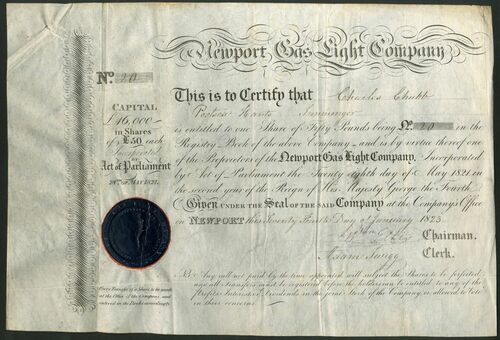 Newport Gas Light Company
No. 20
CAPITAL
£16,000
in Shares
of £50 each
Incorporated
by
Act of Parliament
28th of MAY 1821.
This is to Certify that Charles Chubb
Portsea Hants Ironmonger
is entitled to one Share of Fifty Pounds being No. 20 in the
Registry Book of the above Company and is by virtue thereof one
of the Proprietors of the Newport Gas Light Company, Incorporated
by Act of Parliament the Twenty eighth day of May 1821 in
the second year of the Reign of His Majesty George the Fourth
Given under the Seal of the said Company at the Company's Office
in NEWPORT this Twenty First Day of January 1823
Chairman.
Clerk.
NB. Any call not paid by the time appointed will subject the Shares to be forfeited
any all transfers must be registered before the holders can be entitled to any of the
Profits Interest or Dividends in the joint Stock of the Company or allowed to Vote
in their concerns.
Every Transfer of a Share to be made
at the Office of the Company and
entered in the Books accordingly.